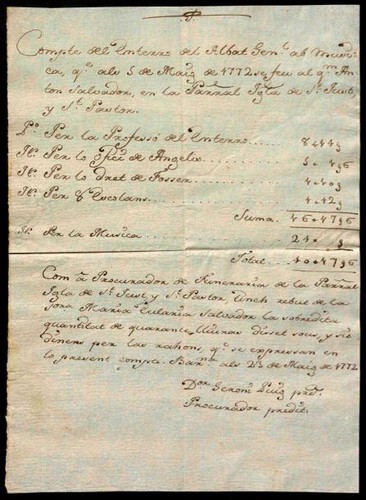 Compte del Enterro del Albat Genl. ab Musi-
ca, qe. als 5 de Maig de 1772 se feu al qm. An-
ton Salvador, en la Parral Igla de St. Just,
y St. Pastor.
Po. Per la Professó del Enterro
It. Per lo Ofici de Angelis
It. Per lo dret de Fosser
It. Per 8 Escolans
Suma
It. Per la Musica
Total
Com á Procurador de Funeraria de la Parral
Igla de St. Just, y St. Pastor, tinch rebut de la
Sora Maria Eularia Salvador la sobredita
quantitat de quaranta lliuras disset sous, y sis
diners per las rahons, qe. se expressan en
lo present compte. Barna als 23 de Maig de 1772
Dor. Geroni Puig pre.
Procurador predit.